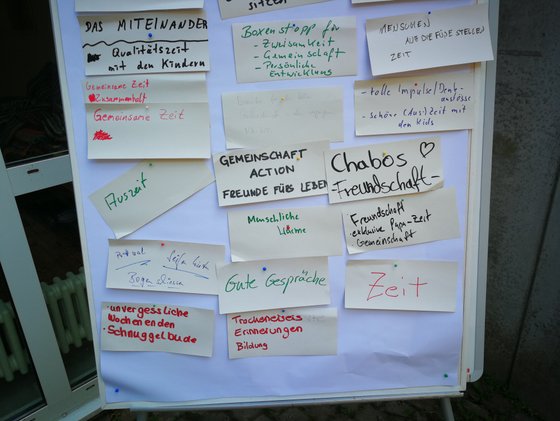 sitzen
DAS MITEINANDER
Qualitätszeit
mit den Kindern
Boxenstopp für
- Zweisamkeit
- Gemeinschaft
- Persönliche
Entwicklung
MENSCHEN
AUF DIE FÜßE STELLEN
ZEIT
Gemeinsame Zeit
Zusammenhalt
Gemeinsame Zeit
- tolle Impulse/Denk-
anstösse
- schöne (Aus-)Zeit mit
den Kids
GEMEINSCHAFT
ACTION
FREUNDE FÜRS LEBEN
Chabos ♡
-Freundschaft-
Auszeit
Menschliche
Wärme
Freundschaft
exklusive Papa-Zeit
Gemeinschaft
Gute Gespräche
Zeit
- unvergessliche
Wochenenden
- Schnuggelbude
Trockeneiseis
Erinnerungen
Bildung